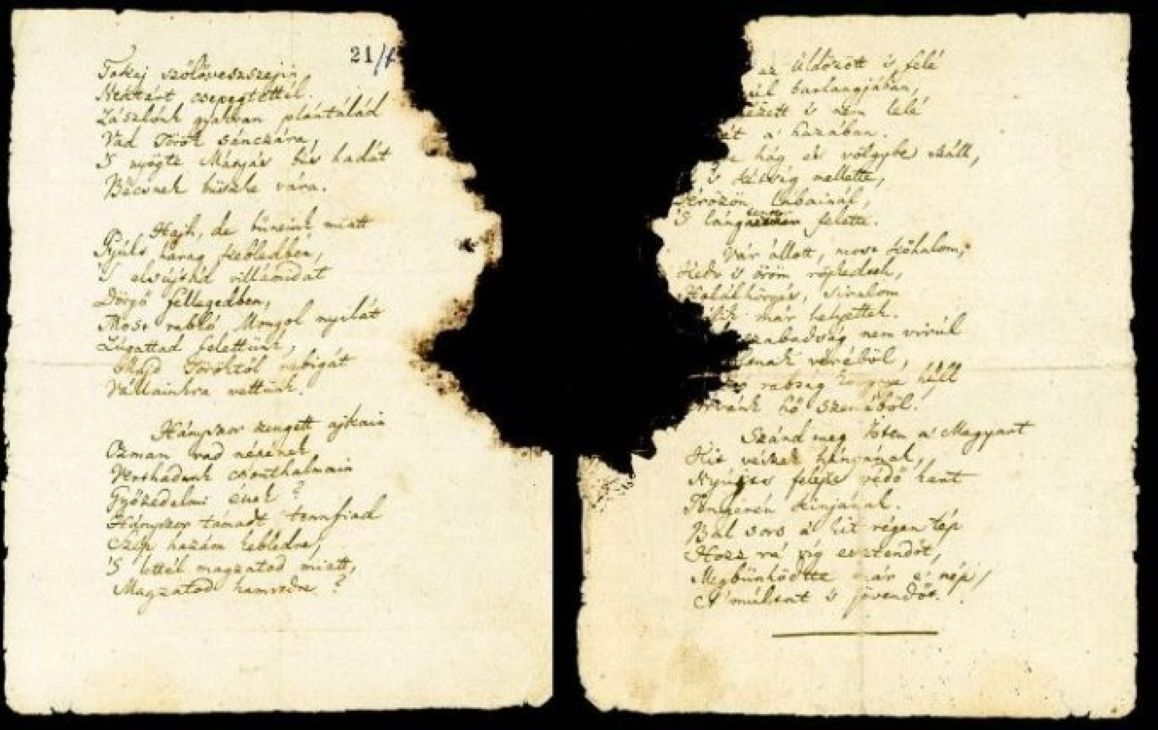 21/
Tokaj szőlővesszejin
Nektárt csepegtettél.
Zászlónk gyakran plántálád
Vad Török sánczára,
'S nyögte Mátyás bús hadát
Bécsnek büszke vára.
Hajh, de bűneink miatt
Gyúlt harag kebledben,
'S elsújtád villámidat
Dörgő fellegedben,
Most rabló Mongol nyilát
Zúgattad felettünk,
Majd Töröktől rabigát
Vállainkra vettünk.
Hányszor zengett ajkain
Ozman vad népének
Vert hadunk csonthalmain
Győzedelmi ének?
Hányszor támadt tennfiad
Szép hazám kebledre,
'S lettél magzatod miatt,
Magzatod hamvvedre?
az üldözött 's felé
barlangjában,
's nem lelé
a' hazában.
hág és völgybe száll,
's kétség mellette,
Vérözön lábainál,
'S lángtenger felette.
Vár állott, most kőhalom;
Kedv 's öröm röpkedtek,
Halálhörgés, siralom
már helyettek.
szabadság nem virúl
véréből,
rabság könnye hull
hő szeméből.
Szánd meg Isten a' Magyart
Kit vészek hányának,
Nyújts feléje védő kart
Tengerén kínjának.
Bal sors a' kit régen tép
Hozz rá víg esztendőt,
Megbűnhödte már e' nép
A' múltat 's jövendőt.